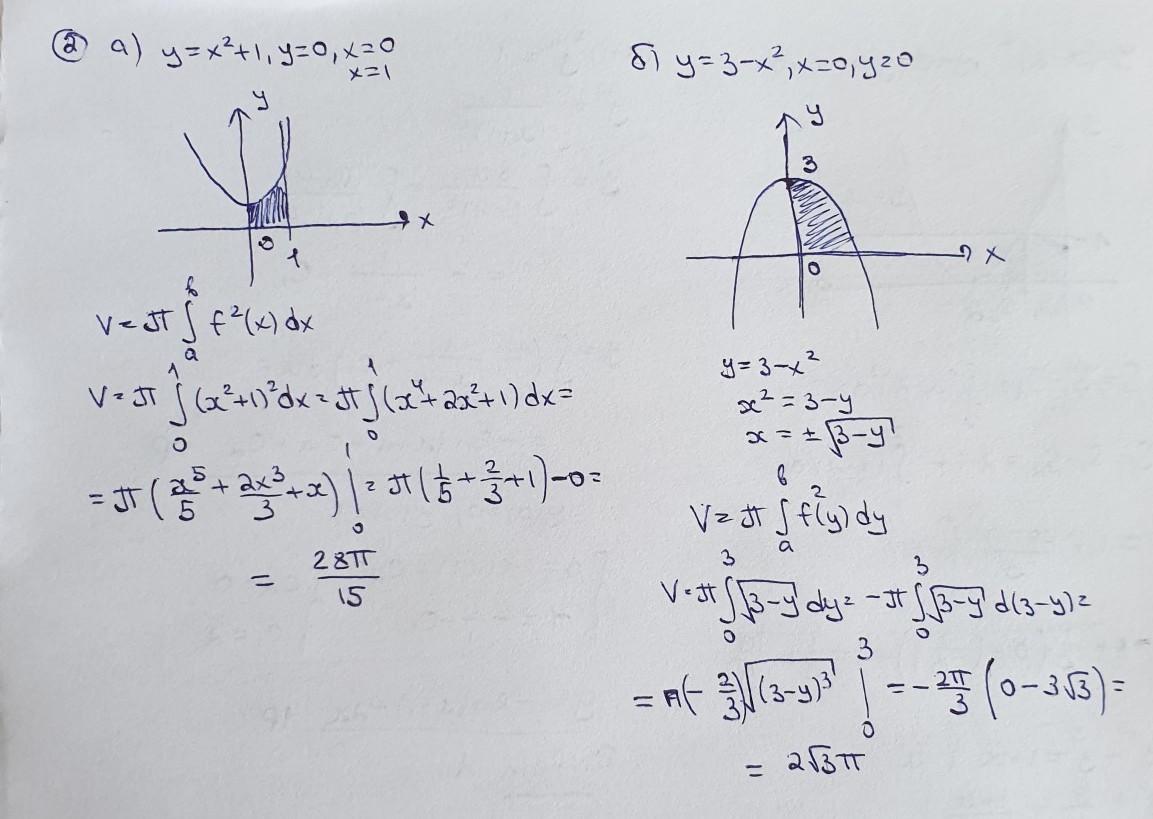 ② а) y=x²+1, y=0, x=0
x=1
y
x
0
1
V = π ∫ₐᵇ f²(x) dx
V = π ∫₀¹ (x²+1)² dx = π ∫₀¹ (x⁴+2x²+1) dx =
= π (x⁵/5 + 2x³/3 + x) |₀¹ = π (1/5 + 2/3 + 1) - 0 =
= 28π/15
б) y=3-x², x=0, y=0
y
3
x
0
y = 3-x²
x² = 3-y
x = ±√(3-y)
V = π ∫ₐᵇ f²(y) dy
V = π ∫₀³ √(3-y) dy = -π ∫₀³ √(3-y) d(3-y) =
= π(-2/3) √((3-y)³) |₀³ = -2π/3 (0-3√3) =
= 2√3π